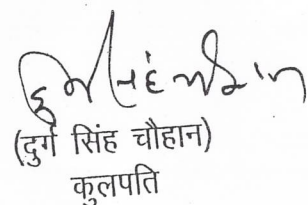 (दुर्ग सिंह चौहान)
कुलपति